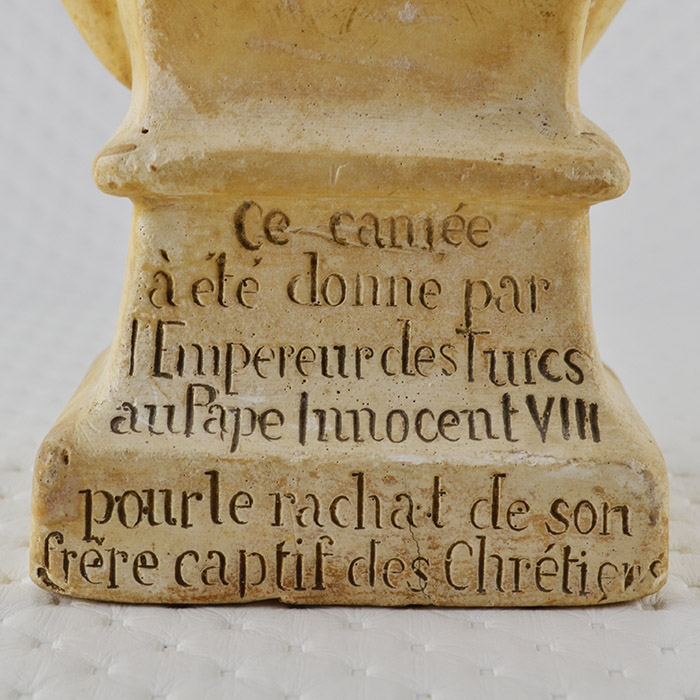 Ce camée
à été donne par
l'Empereur des Turcs
au Pape Innocent VIII
pour le rachat de son
frère captif des Chrétiens